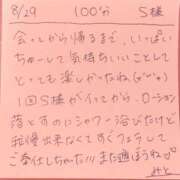 8/29 100分 S様
会ってから帰るまで、いっぱい
ちゅーして気持ちいいことして
とっても楽しかったね(o^^o)
1回S様がイってから、ローション
落とすのにシャワー浴びたけど
我慢出来なくてすぐフェラして
ご奉仕しちゃった!!!また遊ぼうね♡